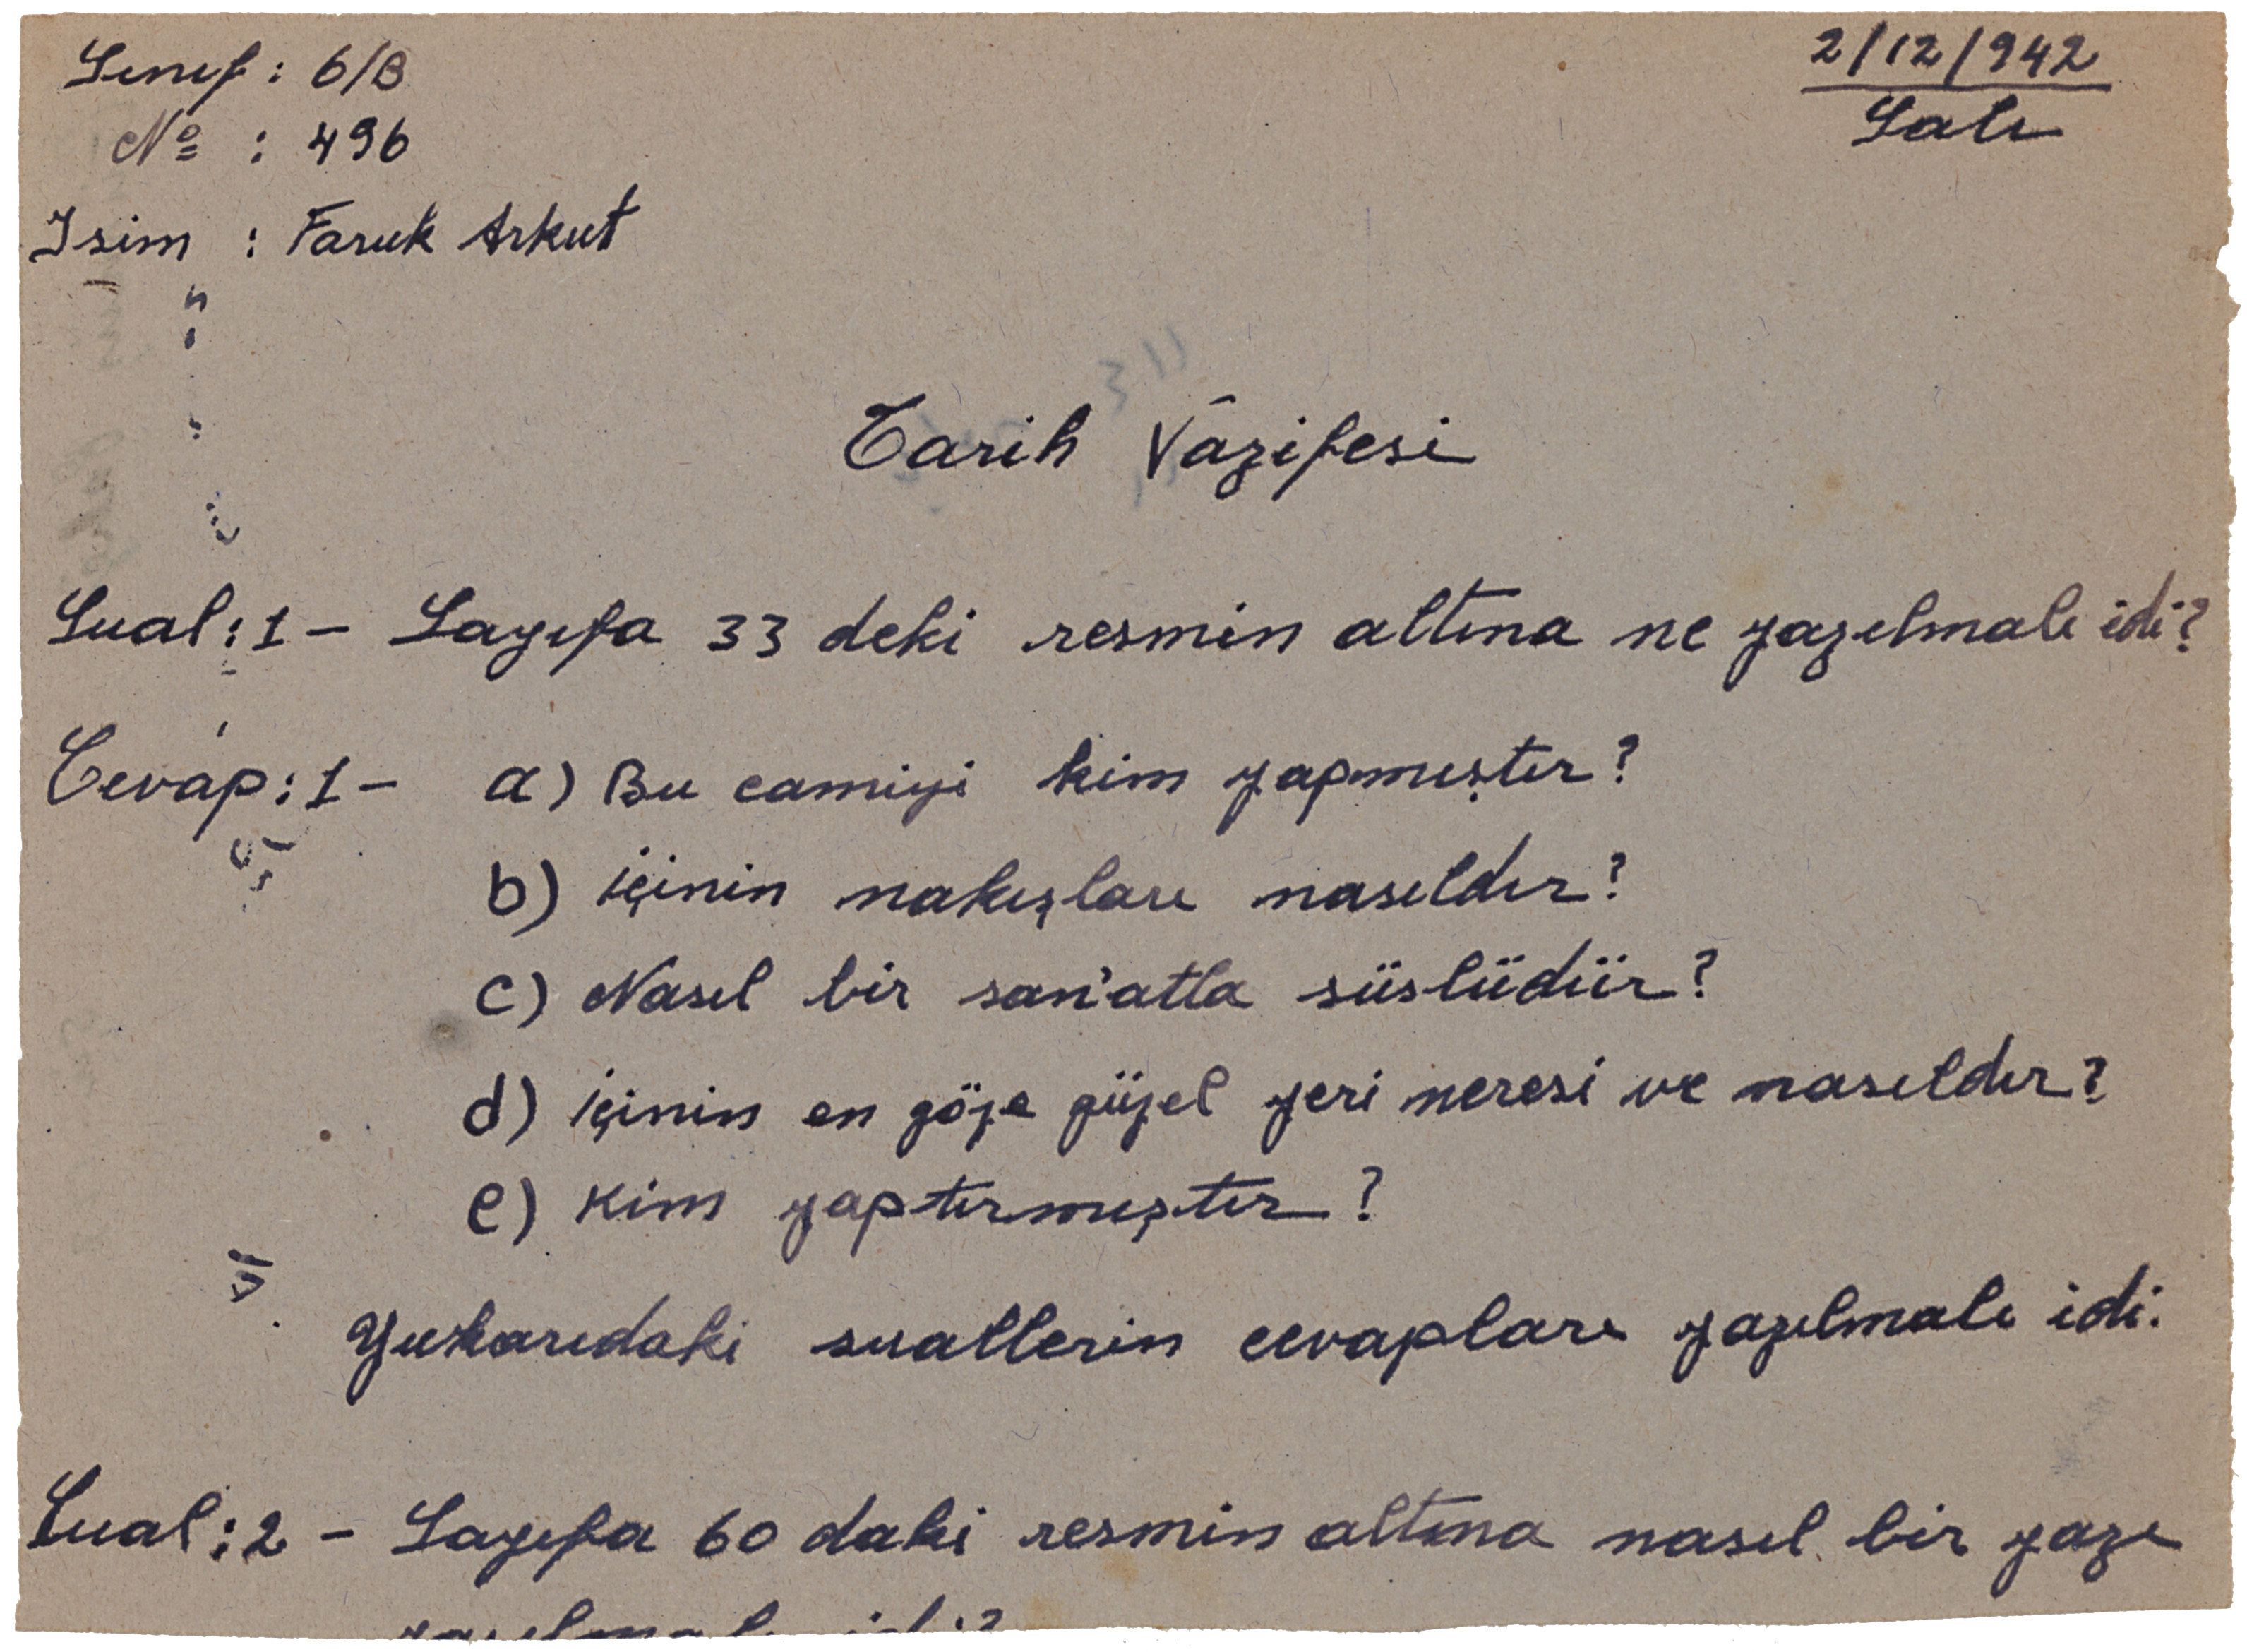 Sınıf : 6/B
2/12/942
No : 496
Salı
Isim : Faruk Arkut
Tarih Vāzifesi
Sual : 1 - Sayıfa 33 deki resmin altına ne yazılmalı idi?
Cevap : 1 - a) Bu camiyi kim yapmıştır?
b) içinin nakışları nasıldır?
c) Nasıl bir san'atla süslüdür?
d) içinin en göze güzel yeri neresi ve nasıldır?
e) Kim yaptırmıştır?
Yukarıdaki suallerin cevapları yazılmalı idi.
Sual : 2 - Sayıfa 60 daki resmin altına nasıl bir yazı
yazılmalı idi?